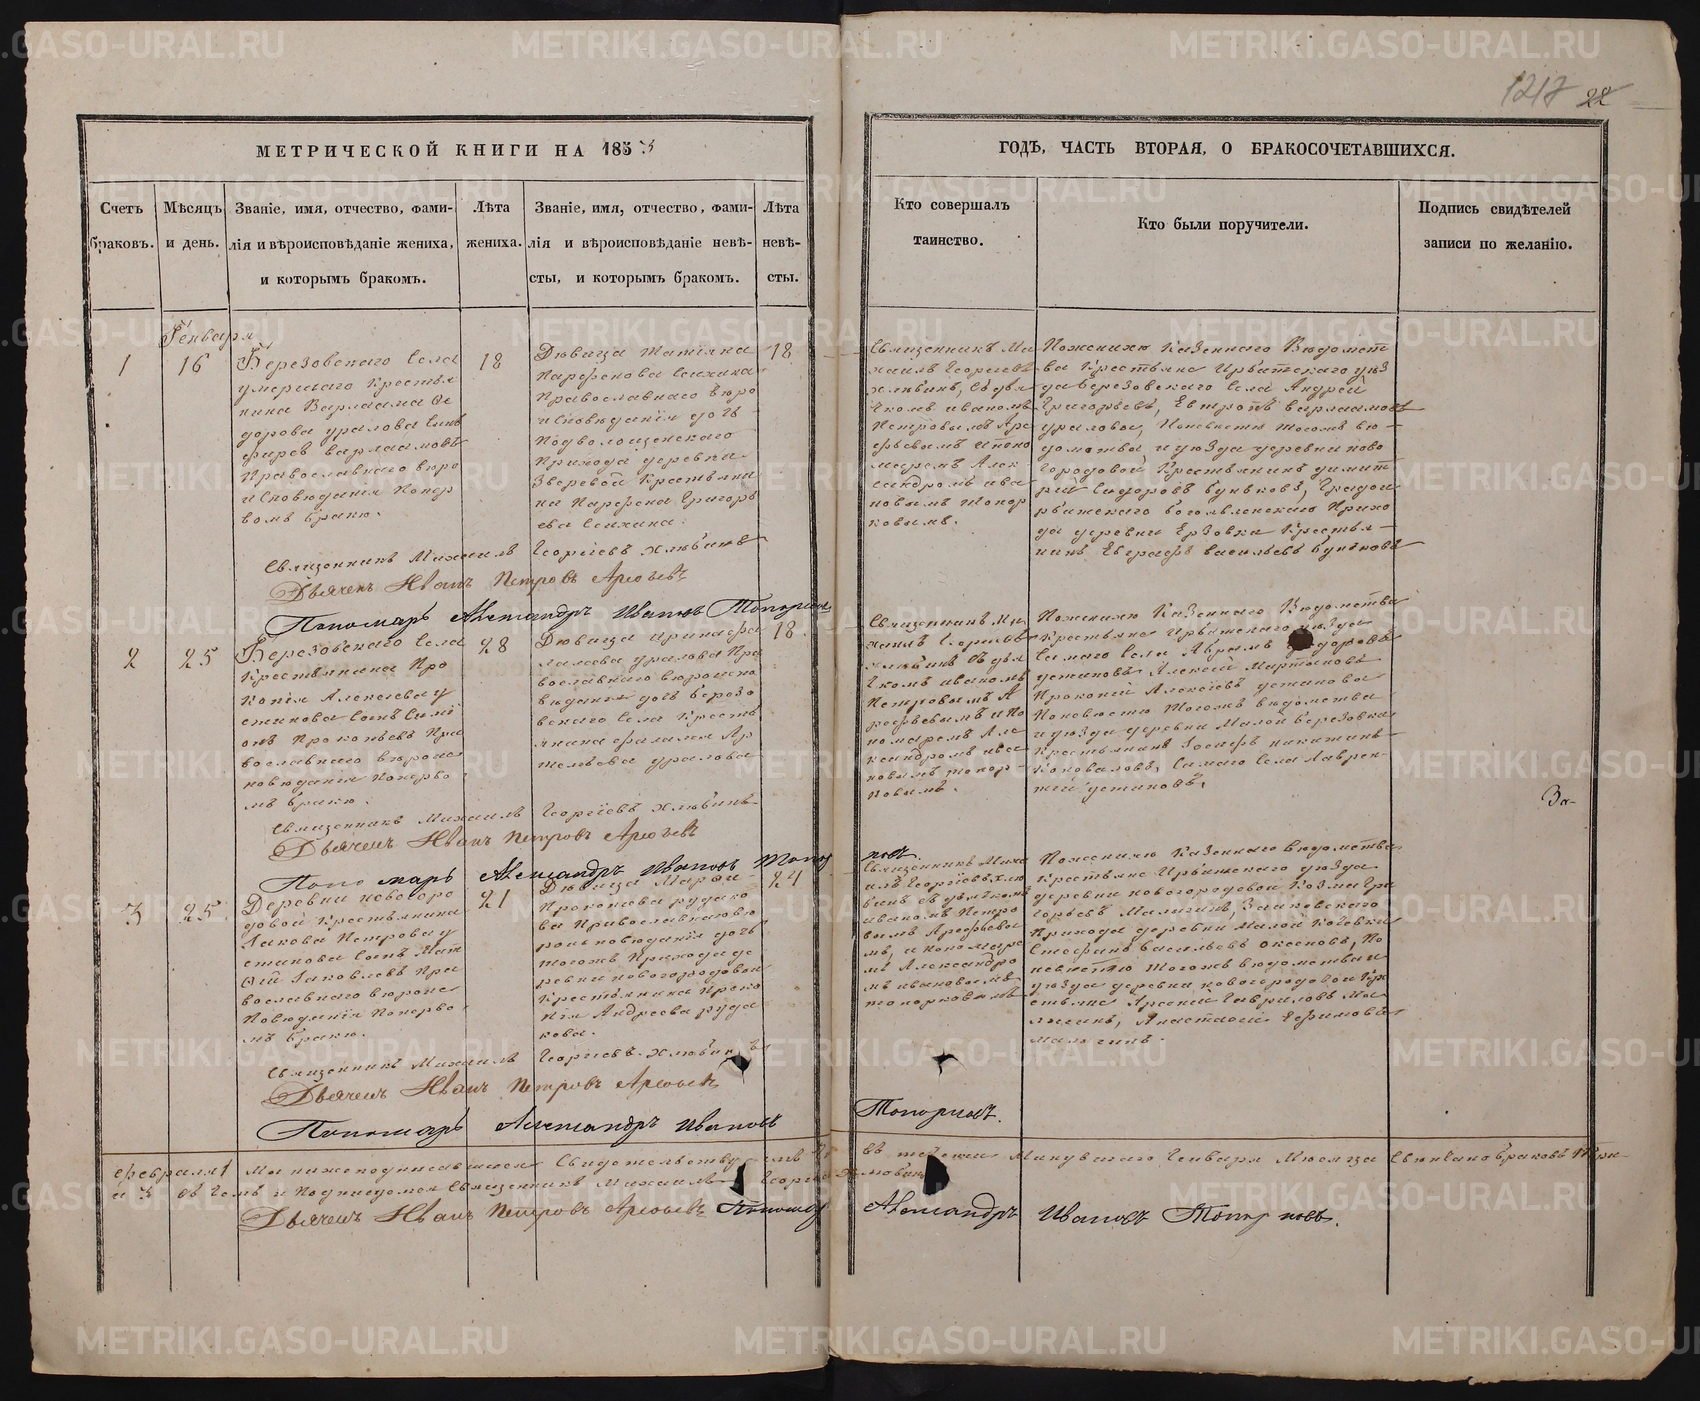 1217 22
МЕТРИЧЕСКОЙ КНИГИ НА 1853
Счетъ браковъ.
Мѣсяцъ и день.
Званіе, имя, отчество, фами-
лія и вѣроисповѣданіе жениха,
и которымъ бракомъ.
Лѣта
жениха.
Званіе, имя, отчество, фами-
лія и вѣроисповѣданіе невѣ-
сты, и которымъ бракомъ.
Лѣта
невѣ-
сты.
ГОДЪ, ЧАСТЬ ВТОРАЯ, О БРАКОСОЧЕТАВШИХСЯ.
Кто совершалъ
таинство.
Кто были поручители.
Подпись свидѣтелей
записи по желанію.
Генваря
1
16
Березовскаго Села
умершаго Крестья
нина Варлаама Ѳе
дорова уралова Сынъ
Варлаамовъ
Православнаго вѣро
исповѣданія Попер
вомъ бракѣ.
18
Дѣвица Татіяна
Парфенова
Православнаго вѣро
исповѣданія дочь
Прихода деревни
Зверевой Крестьяни
на Парфена Григорь
ева
18
Священникъ Ми
хаилъ Георгіевъ
Хлѣбинъ, Съ дья
чкомъ иваномъ
Петровымъ Аре
фьевымъ и поно
маремъ Алек
сандромъ ива
новымъ Топор
ковымъ.
Поженихѣ Казеннаго Вѣдомст
ва Крестьяне Ирбитскаго уѣз
да березовскаго Села Андрей
Григорьевъ, варлаамовъ
ураловы, Поневѣстѣ тогожъ вѣ-
домства и уѣзда деревни ново
городовой Крестьянинъ димит
рій Сидоровъ
богоявленскаго Прихо
да деревни Крестья-
нинъ Евграфъ васильевъ
Священникъ Михаилъ Георгіевъ Хлѣбинъ
Дьячекъ Иванъ Петровъ Арефьевъ
Пономарь Александръ Ивановъ Топорков
2
25
Березовскаго Села
Крестьянина Про
копія Алексѣева у
стинова Сынъ Симі
онъ Прокопьевъ Пра
вославнаго вѣроис
повѣданія Поперво
мъ бракѣ.
28
Дѣвица ирина
уралова Пра
вославнаго вѣроиспо
вѣданія дочь березо
вскаго Села Кресть
янина Ар
темьева уралова
18
Священникъ Ми
хаилъ Георгіевъ
Хлѣбинъ Съ дья
чкомъ иваномъ
Петровымъ А
рефьевымъ и По
номаремъ Але
ксандромъ ива
новымъ топор-
ковымъ.
Поженихѣ Казеннаго Вѣдомства
Крестьяне Ирбитскаго уѣзда
Самаго Села Абрамъ
устиновъ Алексѣй Мартыновъ
Прокопій Алексѣевъ устиновы
Поневѣстѣ тогожъ вѣдомства
и уѣзда деревни Малой березовки
Крестьянинъ Іосифъ никитинъ
Коноваловъ, Самаго Села Лаврен
тій устиновъ,
За-
Священникъ Михаилъ Георгіевъ Хлѣбинъ
Дьячекъ Иванъ Петровъ Арефьевъ
Пономарь Александръ Ивановъ Топор
ковъ.
3
25
Деревни новогоро
довой Крестьянина
Іакова Петрова у
стинова Сынъ Мат
ѳій Іаковлевъ Пра
вославнаго вѣроис
Повѣданія Поперво
мъ бракѣ.
21
Дѣвица Марѳа
Прокопьева рудако
ва Православнаго вѣ
роисповѣданія дочь
тогожъ Прихода де
ревни новогородовой
Крестьянина Проко
пія Андреева руда
кова.
24
Священникъ Миха
илъ Георгіевъ Хлѣ
бинъ Съ дьячкомъ
иваномъ Петро
вымъ Арефьевы
мъ, и Пономаре
мъ Александро
мъ ивановымъ
топорковымъ
Поженихѣ Казеннаго вѣдомства
Крестьяне Ирбитскаго уѣзда
деревни новогородовой Козма Гри
горьевъ Малыгинъ, Заиковскаго
Прихода деревни Малой Кочевки
Стефанъ васильевъ оксеновъ, По
невѣстѣ тогожъ вѣдомства и
уѣзда деревни новогородовой Кре
стьяне Арсеній Гавриловъ Ма
лыгинъ, Анастасій Ефимовъ
малыгинъ.
Священникъ Михаилъ Георгіевъ Хлѣбинъ
Дьячекъ Иванъ Петровъ Арефьевъ
Пономарь Александръ Ивановъ
Топорковъ.
Февраля 1 Мы нижеподписавшіеся Свидѣтельствуемъ что въ теченіи Минувшаго Генваря Мѣсяца Свѣнчано браковъ три
и 3 въ чемъ и Подписуемся Священникъ Михаилъ Георгіевъ Хлѣбинъ
Дьячекъ Иванъ Петровъ Арефьевъ Пономарь Александръ Ивановъ Топорковъ.
METRIKI.GASO-URAL.RU